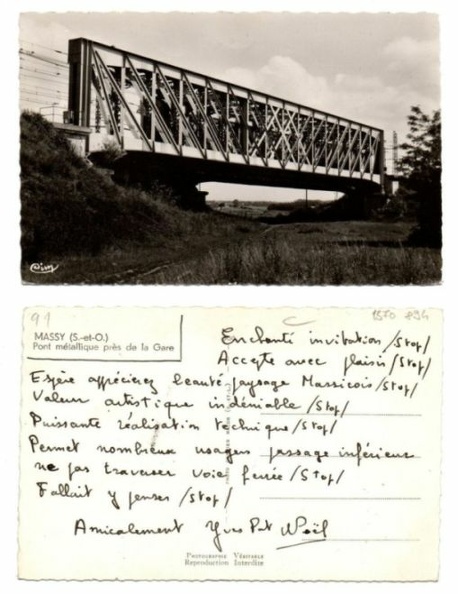 Cim
91
1570 894
C
MASSY (S.-et-O.)
Pont métallique près de la Gare
Enchanté invitation /Stop/
Accepte avec plaisir /Stop/
Espère apprécierez beauté paysage Massicois /Stop/
Valeur artistique indéniable /Stop/
Puissante réalisation technique /Stop/
Permet nombreux usagers passage inférieur
ne pas traverser voie ferrée /Stop/
Fallait y penser /Stop/
Amicalement Yves Noël
Photographie Véritable
Reproduction Interdite